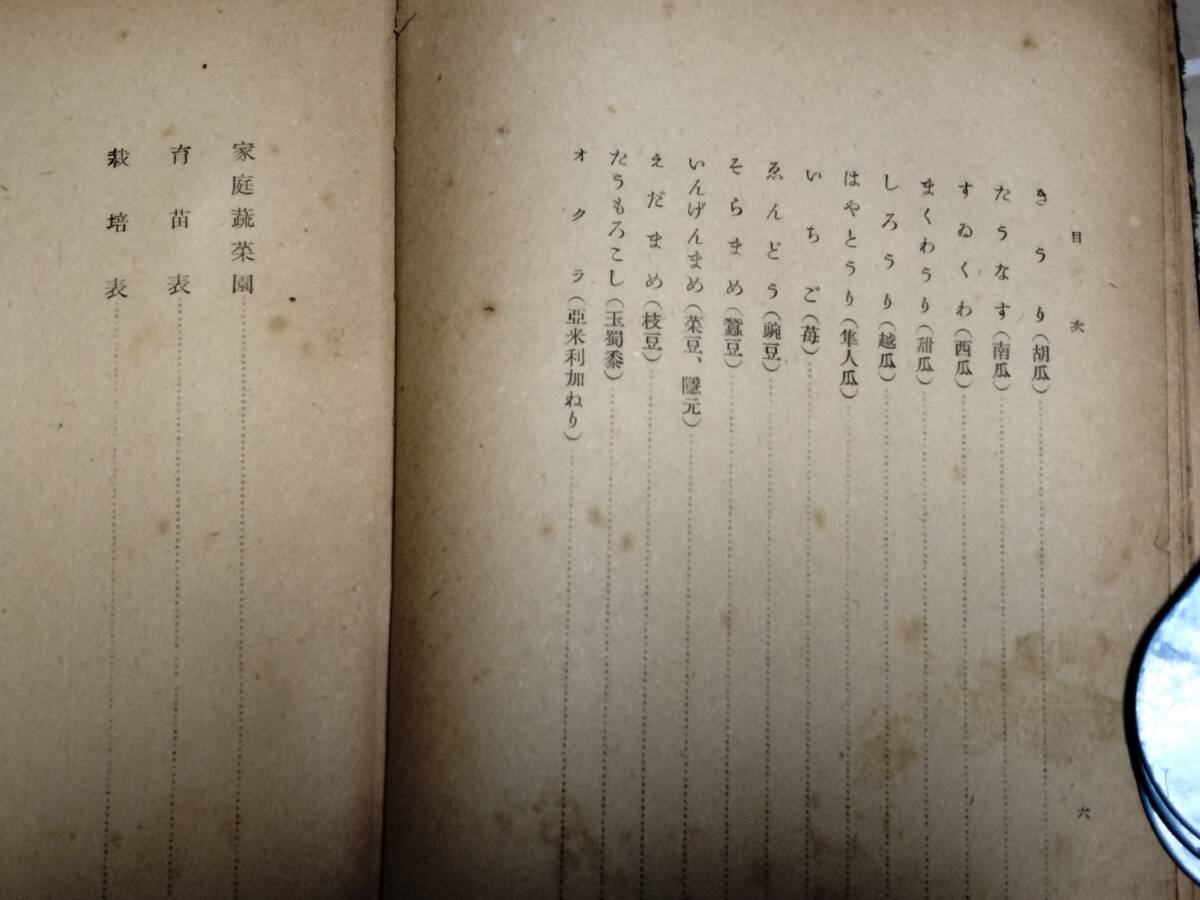 目次
きうり(胡瓜)
たうなす(南瓜)
すゐくわ(西瓜)
まくわうり(甜瓜)
しろうり(越瓜)
はやとうり(隼人瓜)
いちご(苺)
ゑんどう(豌豆)
そらまめ(蠶豆)
いんげんまめ(菜豆、隱元)
えだまめ(枝豆)
たうもろこし(玉蜀黍)
オクラ(亞米利加ねり)
六
家庭蔬菜園
育苗表
栽培表